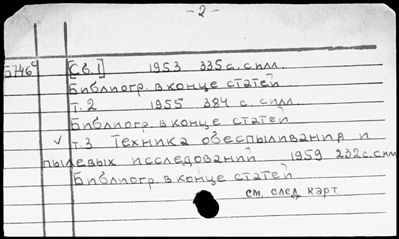 - 2 -
Б7469 [Св.1] 1953 335 с. с илл.
Библиогр. в конце статей
т. 2 1955 384 с. с илл.
Библиогр. в конце статей
✓ т. 3 Техника обеспыливания и
пылевых исследований 1959 232 с. с илл
Библиогр. в конце статей
см. след. карт.